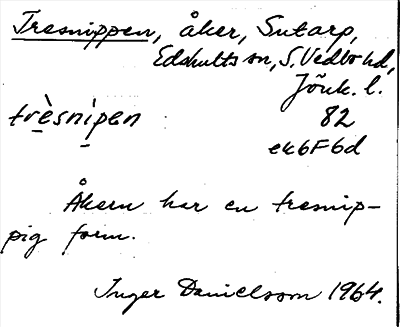 Tresnippen, åker, Sutarp,
Edshults sn, S. Vedbo hd,
Jönk. l.
trèsnipen 82
ek6F6d
Åkern har en tresnip-
pig form.
Inger Danielsson 1964.